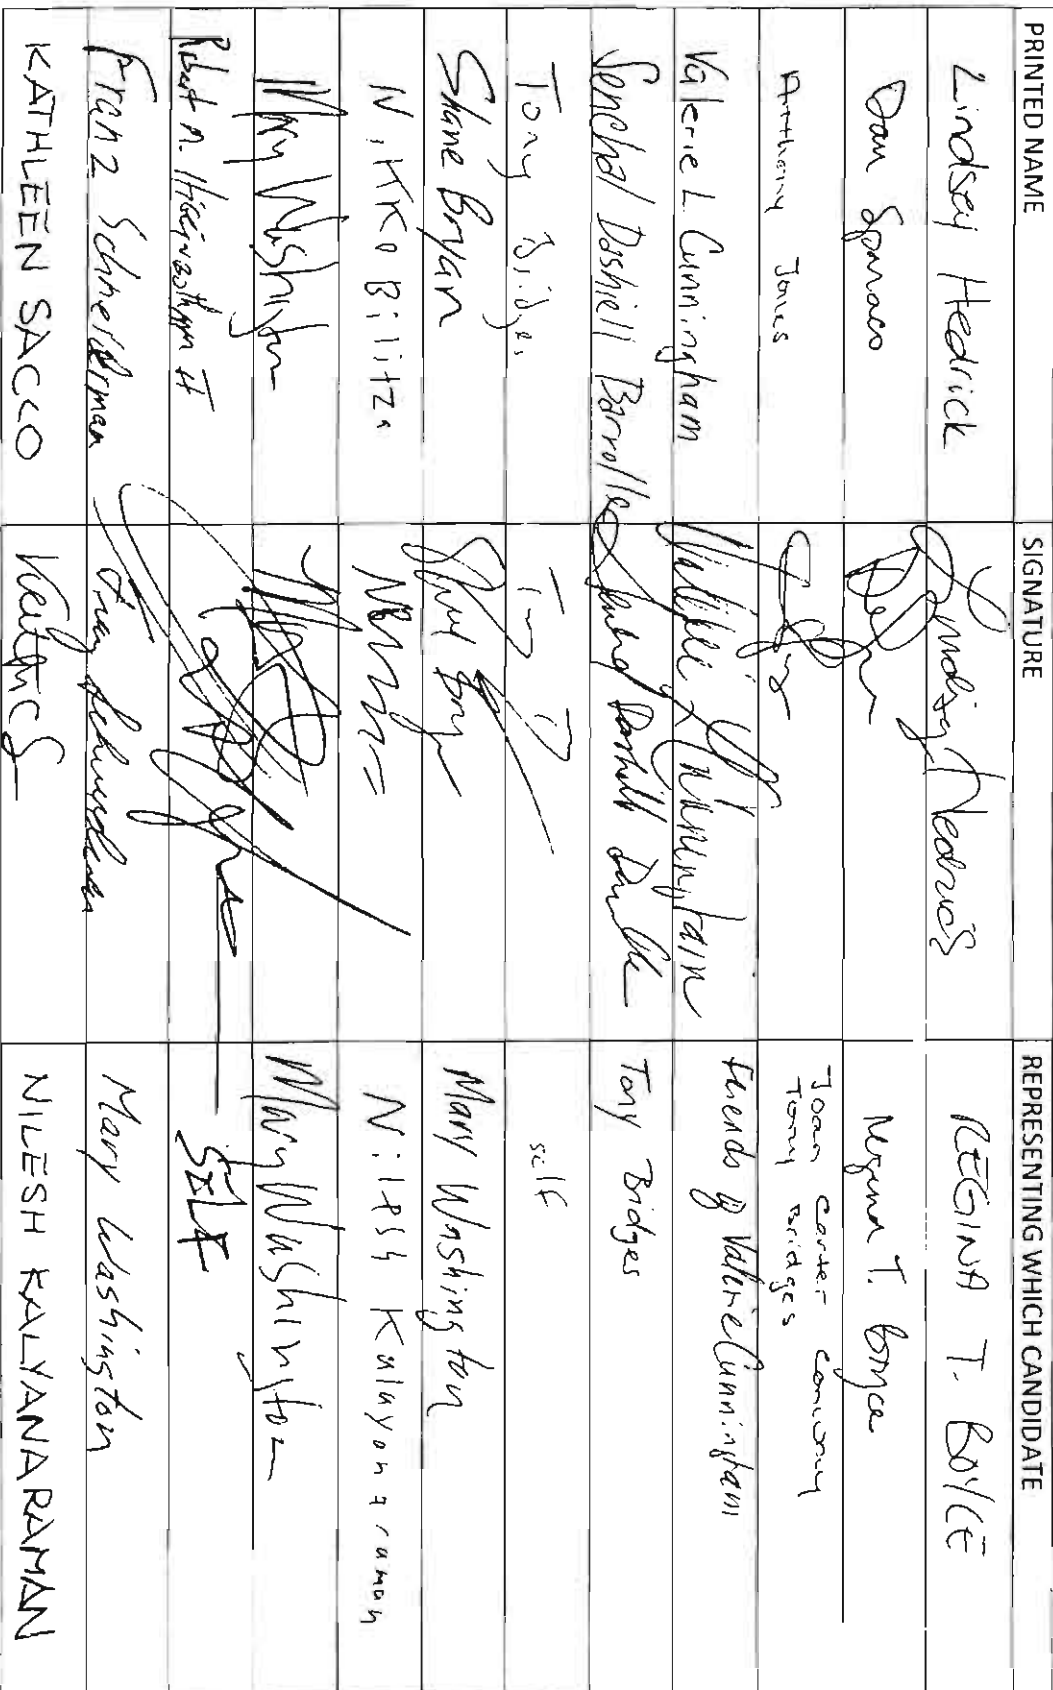 PRINTED NAME SIGNATURE REPRESENTING WHICH CANDIDATE
Lindsey Hedrick Lindsey Hedrick REGINA T. BOYCE
Dan Sparaco Regina T. Boyce
Anthony Jones Joan Carter Conway
Tony Bridges
Valerie L. Cunningham Valerie L. Cunningham Friends of Valerie Cunningham
Senchal Dashiell Barrolle Senchal Dashiell Barrolle Tony Bridges
Tony Bridges self
Shane Bryan Mary Washington
Nikko Bilitza Nilesh Kalayanaraman
Mary Washington Mary Washington
Robert M. II SELF
Franz Schneiderman Franz Schneiderman Mary Washington
KATHLEEN SACCO NILESH KALYANARAMAN